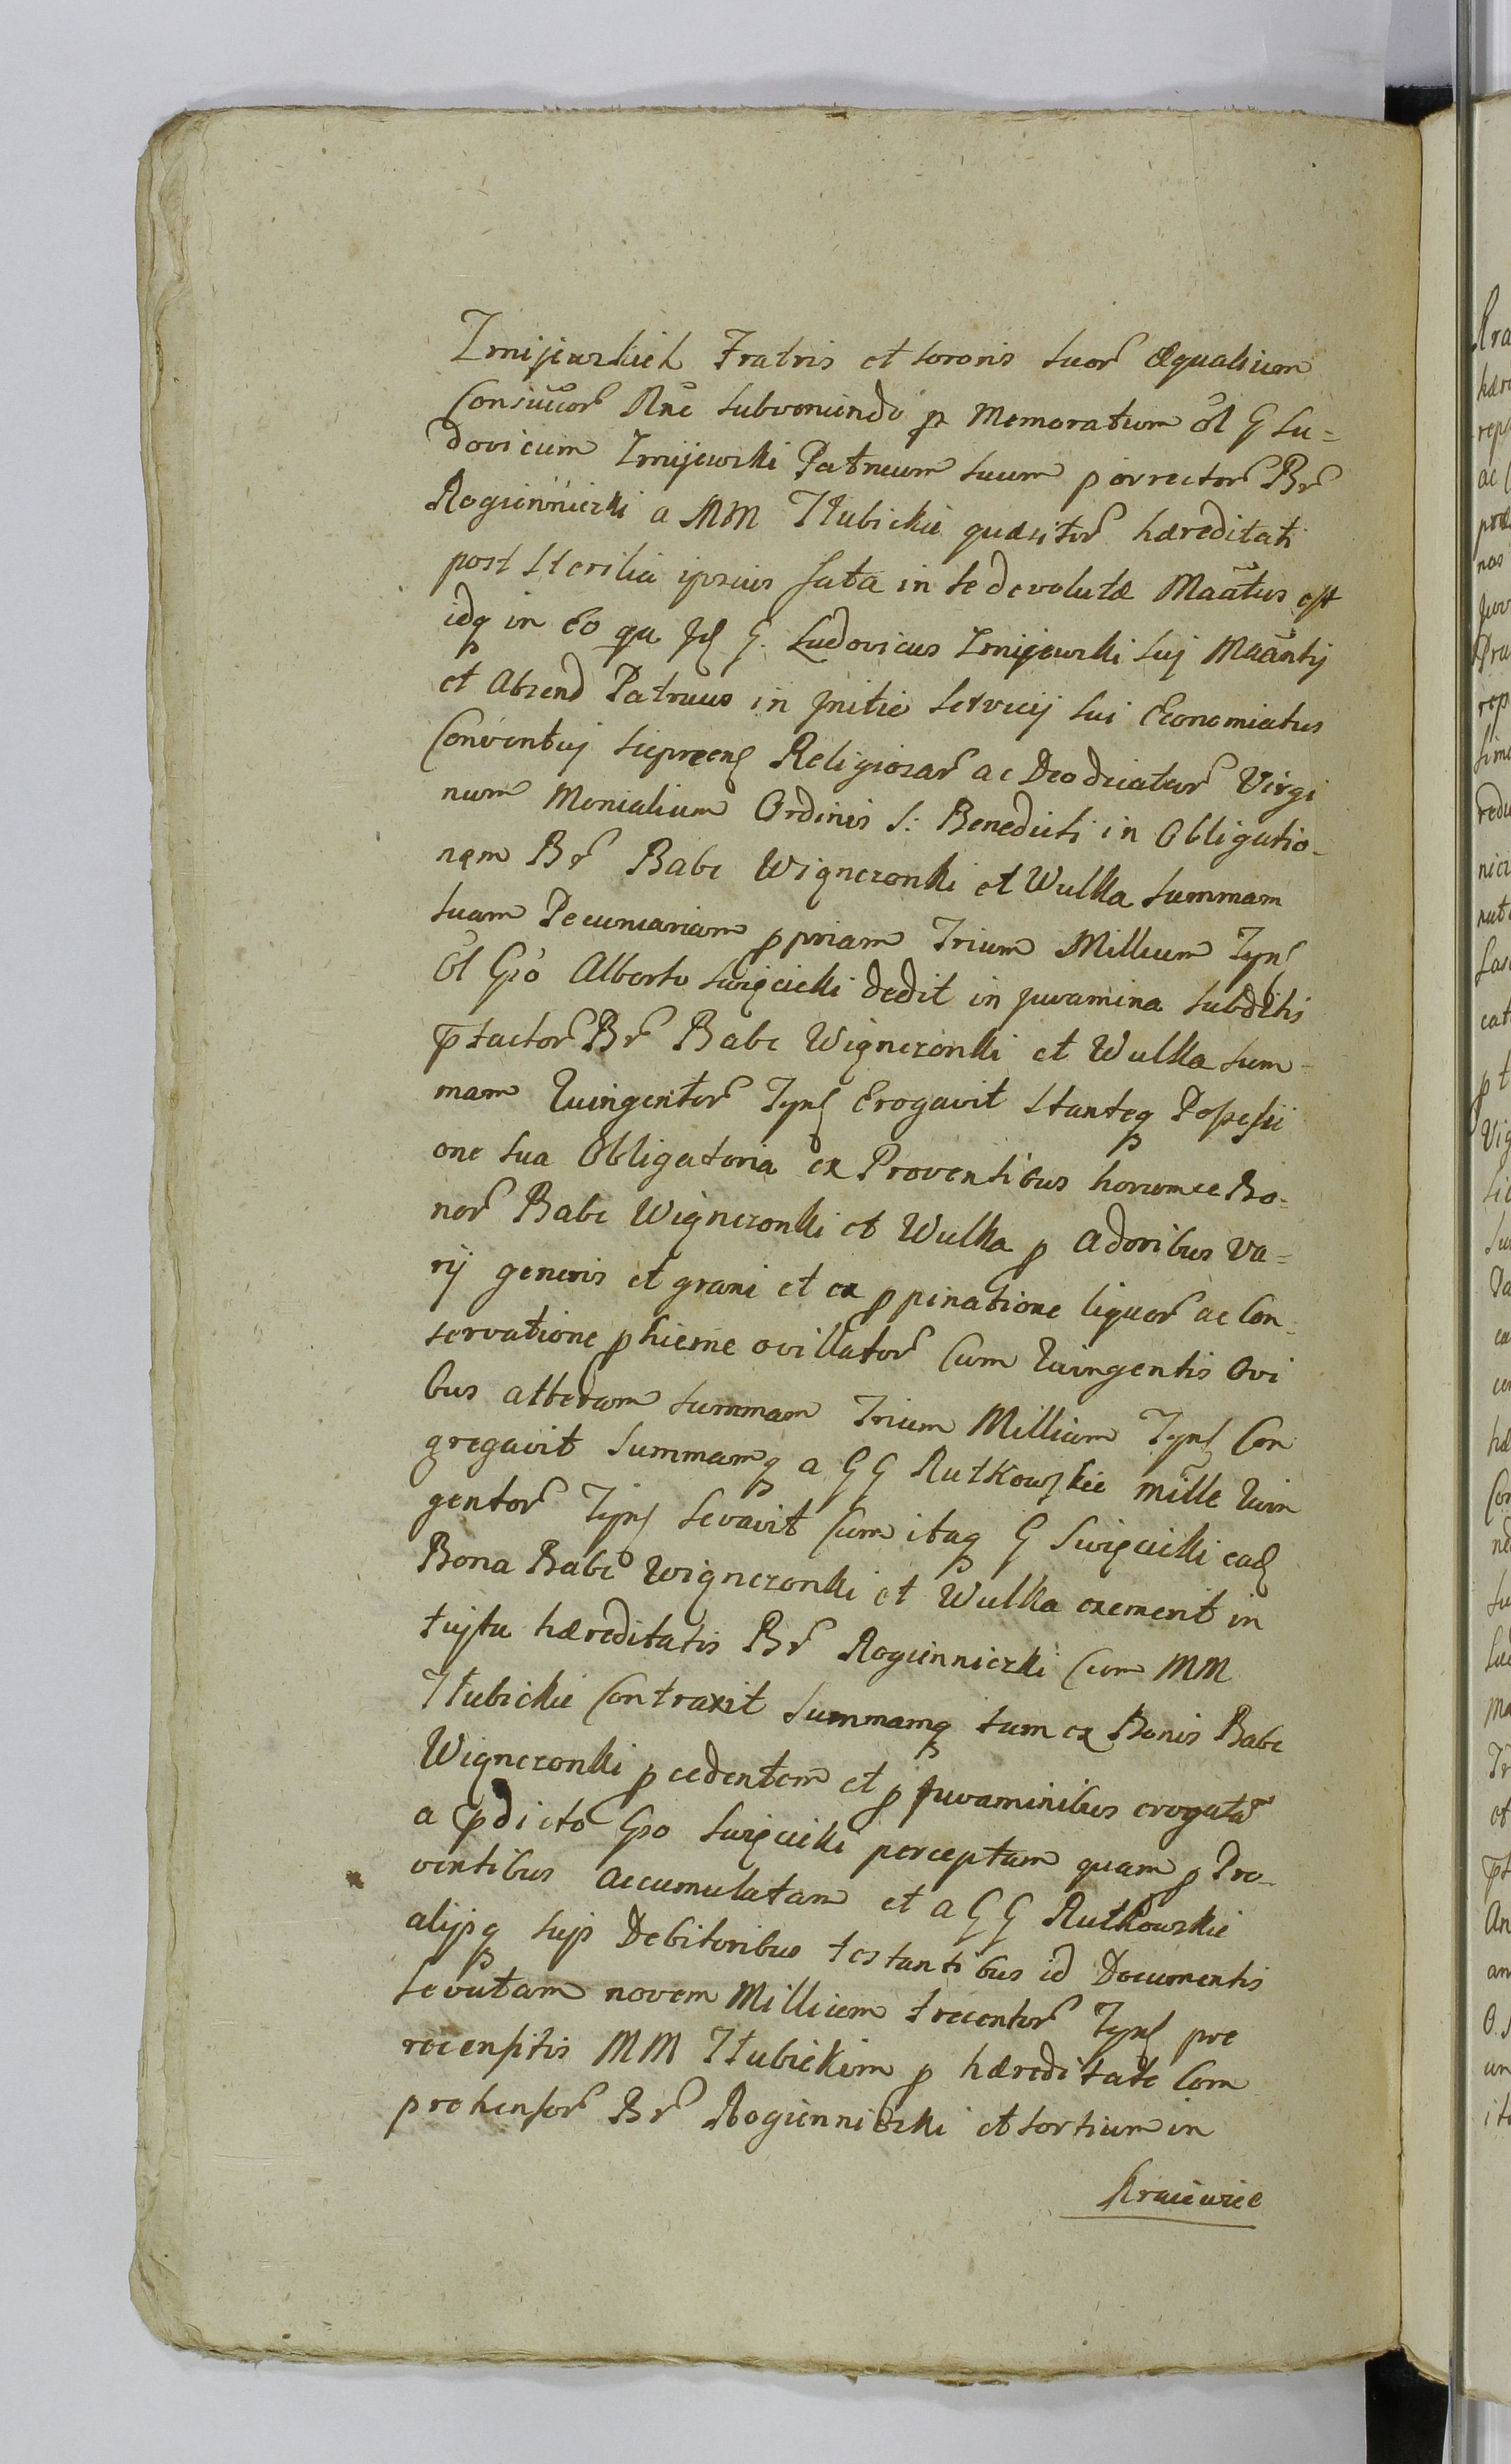 Zmijewskich Fratris et sororis suor æqualium
Consuccor Rne subveniendo p Memoratum ol G Lu=
dovicum Zmijewski Patruum suum porrector Br
Rogienniczki a MM Hubickie quæsitor hæreditati
post sterilia ipsius fata in se devolutæ Maatus est
idq in eo qu Id G. Ludovicus Zmijewski sui Maantis
et Absend Patruus in Initio servicij sui Economiatus
Conventuj Religiosar ac Deo dicatar Virgi
num Monialium Ordinis S: Benedicti in Obligatio-
nem Br Babc Wigneronki et Wulka summam
suam Pecuniariam ppriam Trium Millium Tyn
ol Gso Alberto Swięcicki dedit in juvamina subditis
ptactor Br Babc Wigneronki et Wulka sum-
mam Quingentor Tyn Erogavit stanteq Possessi
one sua Obligatoria ex Proventibus horumce Bo-
nor Babc Wigneronki et Wulka p adoribus va=
rij generis et grani et ex ppinatione liquor ac Con-
servatione p hieme ovillator Cum Quingentis Ovi
bus alteram summam Trium Millium Tyn Con
gregavit summamq a GG Rutkowskie mille Quin
gentor Tyn levavit Cum itaq G Swięcicki ead
Bona Babc Wigneronki et Wulka exemerit in
tuitu hæreditatis Br Rogienniczki Cum MM
Hubickie Contraxit summamq tam ex Bonis Babc
Wigneronki pcedentem et p juvaminibus erogata
a pdicto Gso Swięcicki perceptam quam p Pro-
ventibus accumulatam et a GG Rutkowskie
alijsq suis Debitoribus testantibus id Documentis
levatam novem Millium trecentor Tyn pre
recensitis MM Hubickim p hæreditate Com
prehensor Br Rogienniczki et sortium in